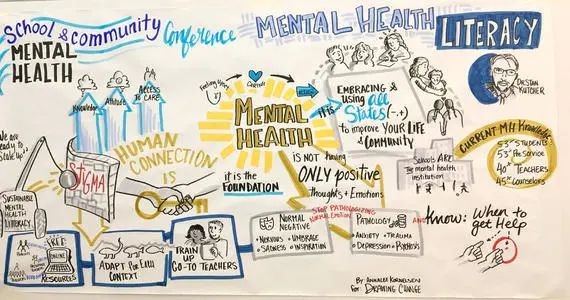 School & community
MENTAL
HEALTH
Conference
MENTAL HEALTH
LITERACY
Knowledge
Attitude
ACCESS
TO CARE
We are
Ready to
Scale Up
STIGMA
HUMAN
CONNECTION
IS
it is the
FOUNDATION
Feeling
Control
MENTAL
HEALTH
IT IS
EMBRACING &
using all
States (-,+)
to improve YOUR LIFE
& COMMUNITY
DR. STAN
KUTCHER
Schools ARE
The mental health
institution
CURRENT MH Knowledge
53% STUDENTS
53% Pre Service
40% TEACHERS
45% Counselors
IS NOT having
ONLY positive
Thoughts + Emotions
STOP PATHOLOGIZING
NORMAL Emotions
SUSTAINABLE
MENTAL
HEALTH
LITERACY
FREE
ONLINE
RESOURCES
ADAPT For EACH
CONTEXT
TRAIN
UP
GO-TO TEACHERS
NORMAL
NEGATIVE
• NERVOUS • UMBRAGE
• SADNESS • INSPIRATION
PATHOLOGY
• ANXIETY • TRAUMA
• DEPRESSION • PSYCHOSIS
AND
Know: When to
get Help
By: ANNALEE KORNELSEN
For: DRAWING CHANGE